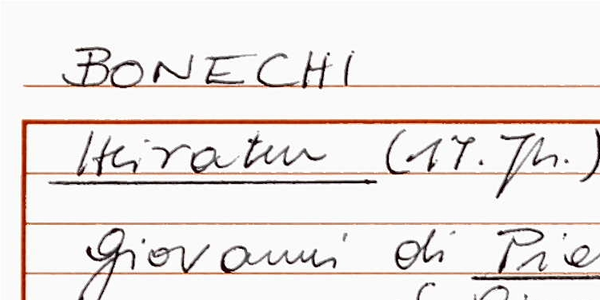 BONECHI
Heiraten (17. Jh.)
Giovanni di Pie